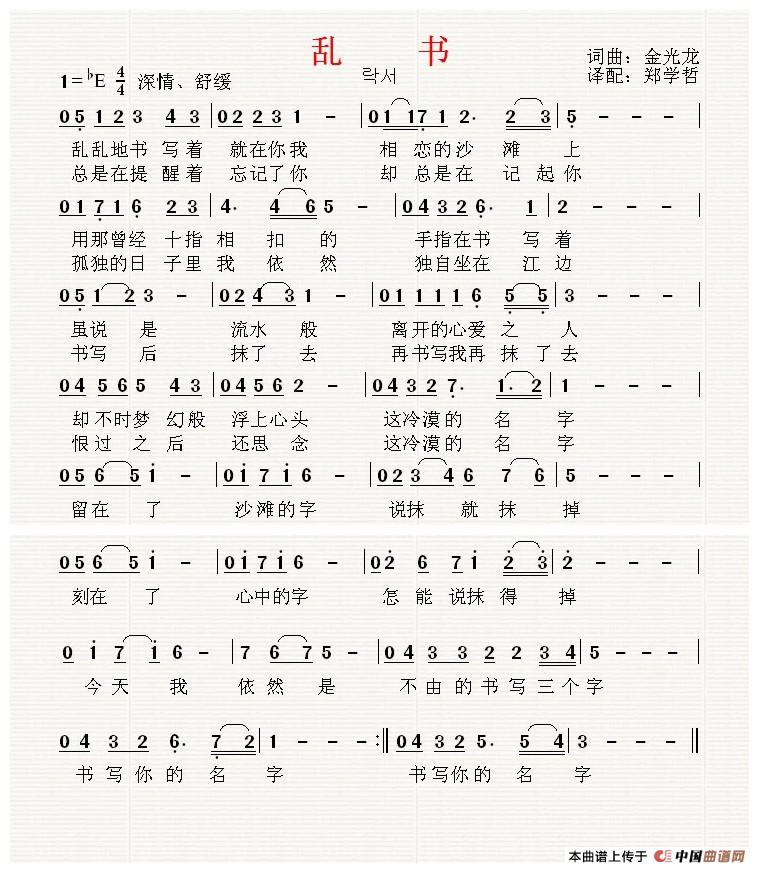 乱 书
词曲：金光龙
1=♭E 4/4 深情、舒缓
락서
译配：郑学哲
0 5 1 2 3 4 3 | 0 2 2 3 1 - | 0 1 1 7 1 2· 2 3 | 5 - - - |
乱乱地书 写着 就在你我 相 恋的沙 滩 上
总是在提 醒着 忘记了你 却 总是在 记 起你
0 1 7 1 6 2 3 | 4· 4 6 5 - | 0 4 3 2 6· 1 | 2 - - - |
用那曾经 十指 相 扣 的 手指在书 写 着
孤独的日 子里 我 依 然 独自坐在 江 边
0 5 1 2 3 - | 0 2 4 3 1 - | 0 1 1 1 1 6 5 5 | 3 - - - |
虽说 是 流水 般 离开的心爱 之 人
书写 后 抹了 去 再书写我再 抹 了去
0 4 5 6 5 4 3 | 0 4 5 6 2 - | 0 4 3 2 7· 1· 2 | 1 - - - |
却 不时梦 幻般 浮上心头 这冷漠的 名 字
恨 过 之 后 还思 念 这冷漠的 名 字
0 5 6 5 1 - | 0 1 7 1 6 - | 0 2 3 4 6 7 6 | 5 - - - |
留在 了 沙滩的字 说抹 就 抹 掉
0 5 6 5 1 - | 0 1 7 1 6 - | 0 2 6 7 1 2 3 | 2 - - - |
刻在 了 心中的字 怎 能 说抹 得 掉
0 1 7 1 6 - | 7 6 7 5 - | 0 4 3 3 2 2 3 4 | 5 - - - |
今天 我 依 然 是 不 由 的 书 写 三个 字
0 4 3 2 6· 7 2 | 1 - - - :‖ 0 4 3 2 5· 5 4 | 3 - - - ‖
书 写 你 的 名 字 书写你 的 名 字
本曲谱上传于 中国曲谱网